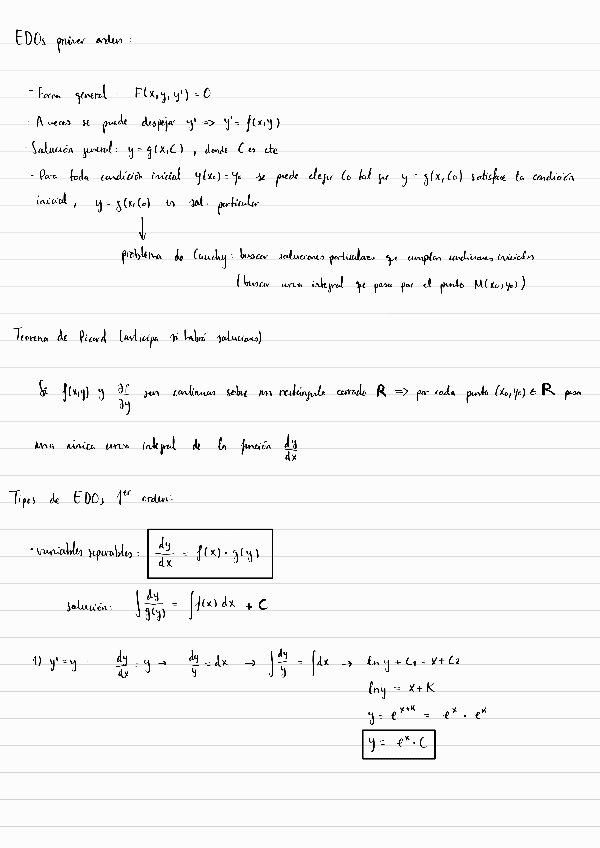 EDOs primer orden:
- Forma general F(x,y,y') = 0
- A veces se puede despejar y' => y' = f(x,y)
- Solución general: y = g(x,C), donde C es cte
- Para toda condición inicial y(x₀) = y₀ se puede elegir C₀ tal que y = g(x,C₀) satisface la condición
inicial, y = g(x,C₀) es sol. particular
↓
problema de Cauchy: buscar soluciones particulares que cumplan condiciones iniciales
(buscar curva integral que pasa por el punto M(x₀,y₀))
Teorema de Picard (anticipa si habrá soluciones)
Si f(x,y) y ∂f/∂y son continuas sobre un rectángulo cerrado R => por cada punto (x₀,y₀) ∈ R pasa
una única curva integral de la función dy/dx
Tipos de EDOs 1er orden:
· variables separables: dy/dx = f(x) · g(y)
solución: ∫ dy/g(y) = ∫ f(x) dx + C
1) y' = y dy/dx = y → dy/y = dx → ∫ dy/y = ∫ dx → ln y + C₁ = x + C₂
ln y = x + K
y = e^(x+K) = e^x · e^K
y = e^x · C